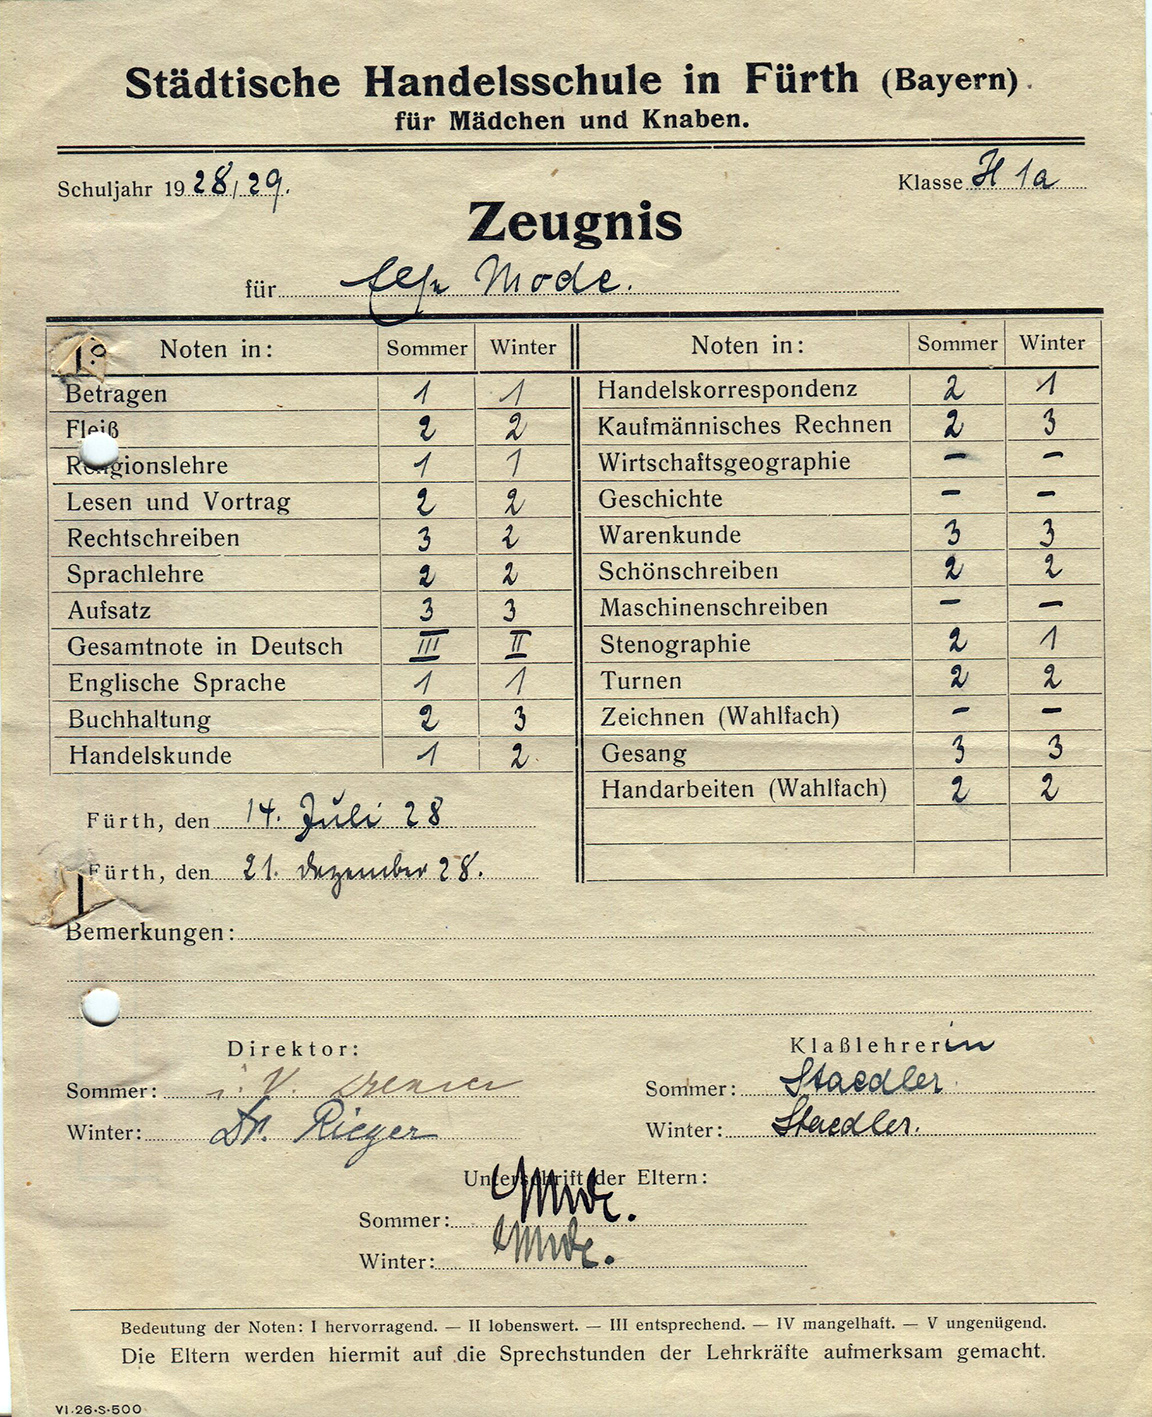 Städtische Handelsschule in Fürth (Bayern).
für Mädchen und Knaben.
Schuljahr 1928/29.
Klasse H 1a
Zeugnis
für Mode.
Noten in: Sommer Winter
Betragen 1 1
Fleiß 2 2
Religionslehre 1 1
Lesen und Vortrag 2 2
Rechtschreiben 3 2
Sprachlehre 2 2
Aufsatz 3 3
Gesamtnote in Deutsch III II
Englische Sprache 1 1
Buchhaltung 2 3
Handelskunde 1 2
Noten in: Sommer Winter
Handelskorrespondenz 2 1
Kaufmännisches Rechnen 2 3
Wirtschaftsgeographie – –
Geschichte – –
Warenkunde 3 3
Schönschreiben 2 2
Maschinenschreiben – –
Stenographie 2 1
Turnen 2 2
Zeichnen (Wahlfach) – –
Gesang 3 3
Handarbeiten (Wahlfach) 2 2
Fürth, den 14. Juli 28
Fürth, den 21. Dezember 28.
Bemerkungen:
Direktor:
Sommer: i. V.
Winter: Dr. Rieger
Klaßlehrerin
Sommer: Staedler
Winter: Staedler.
Unterschrift der Eltern:
Sommer: Mode.
Winter: Mode.
Bedeutung der Noten: I hervorragend. — II lobenswert. — III entsprechend. — IV mangelhaft. — V ungenügend.
Die Eltern werden hiermit auf die Sprechstunden der Lehrkräfte aufmerksam gemacht.
VI·26·S·500